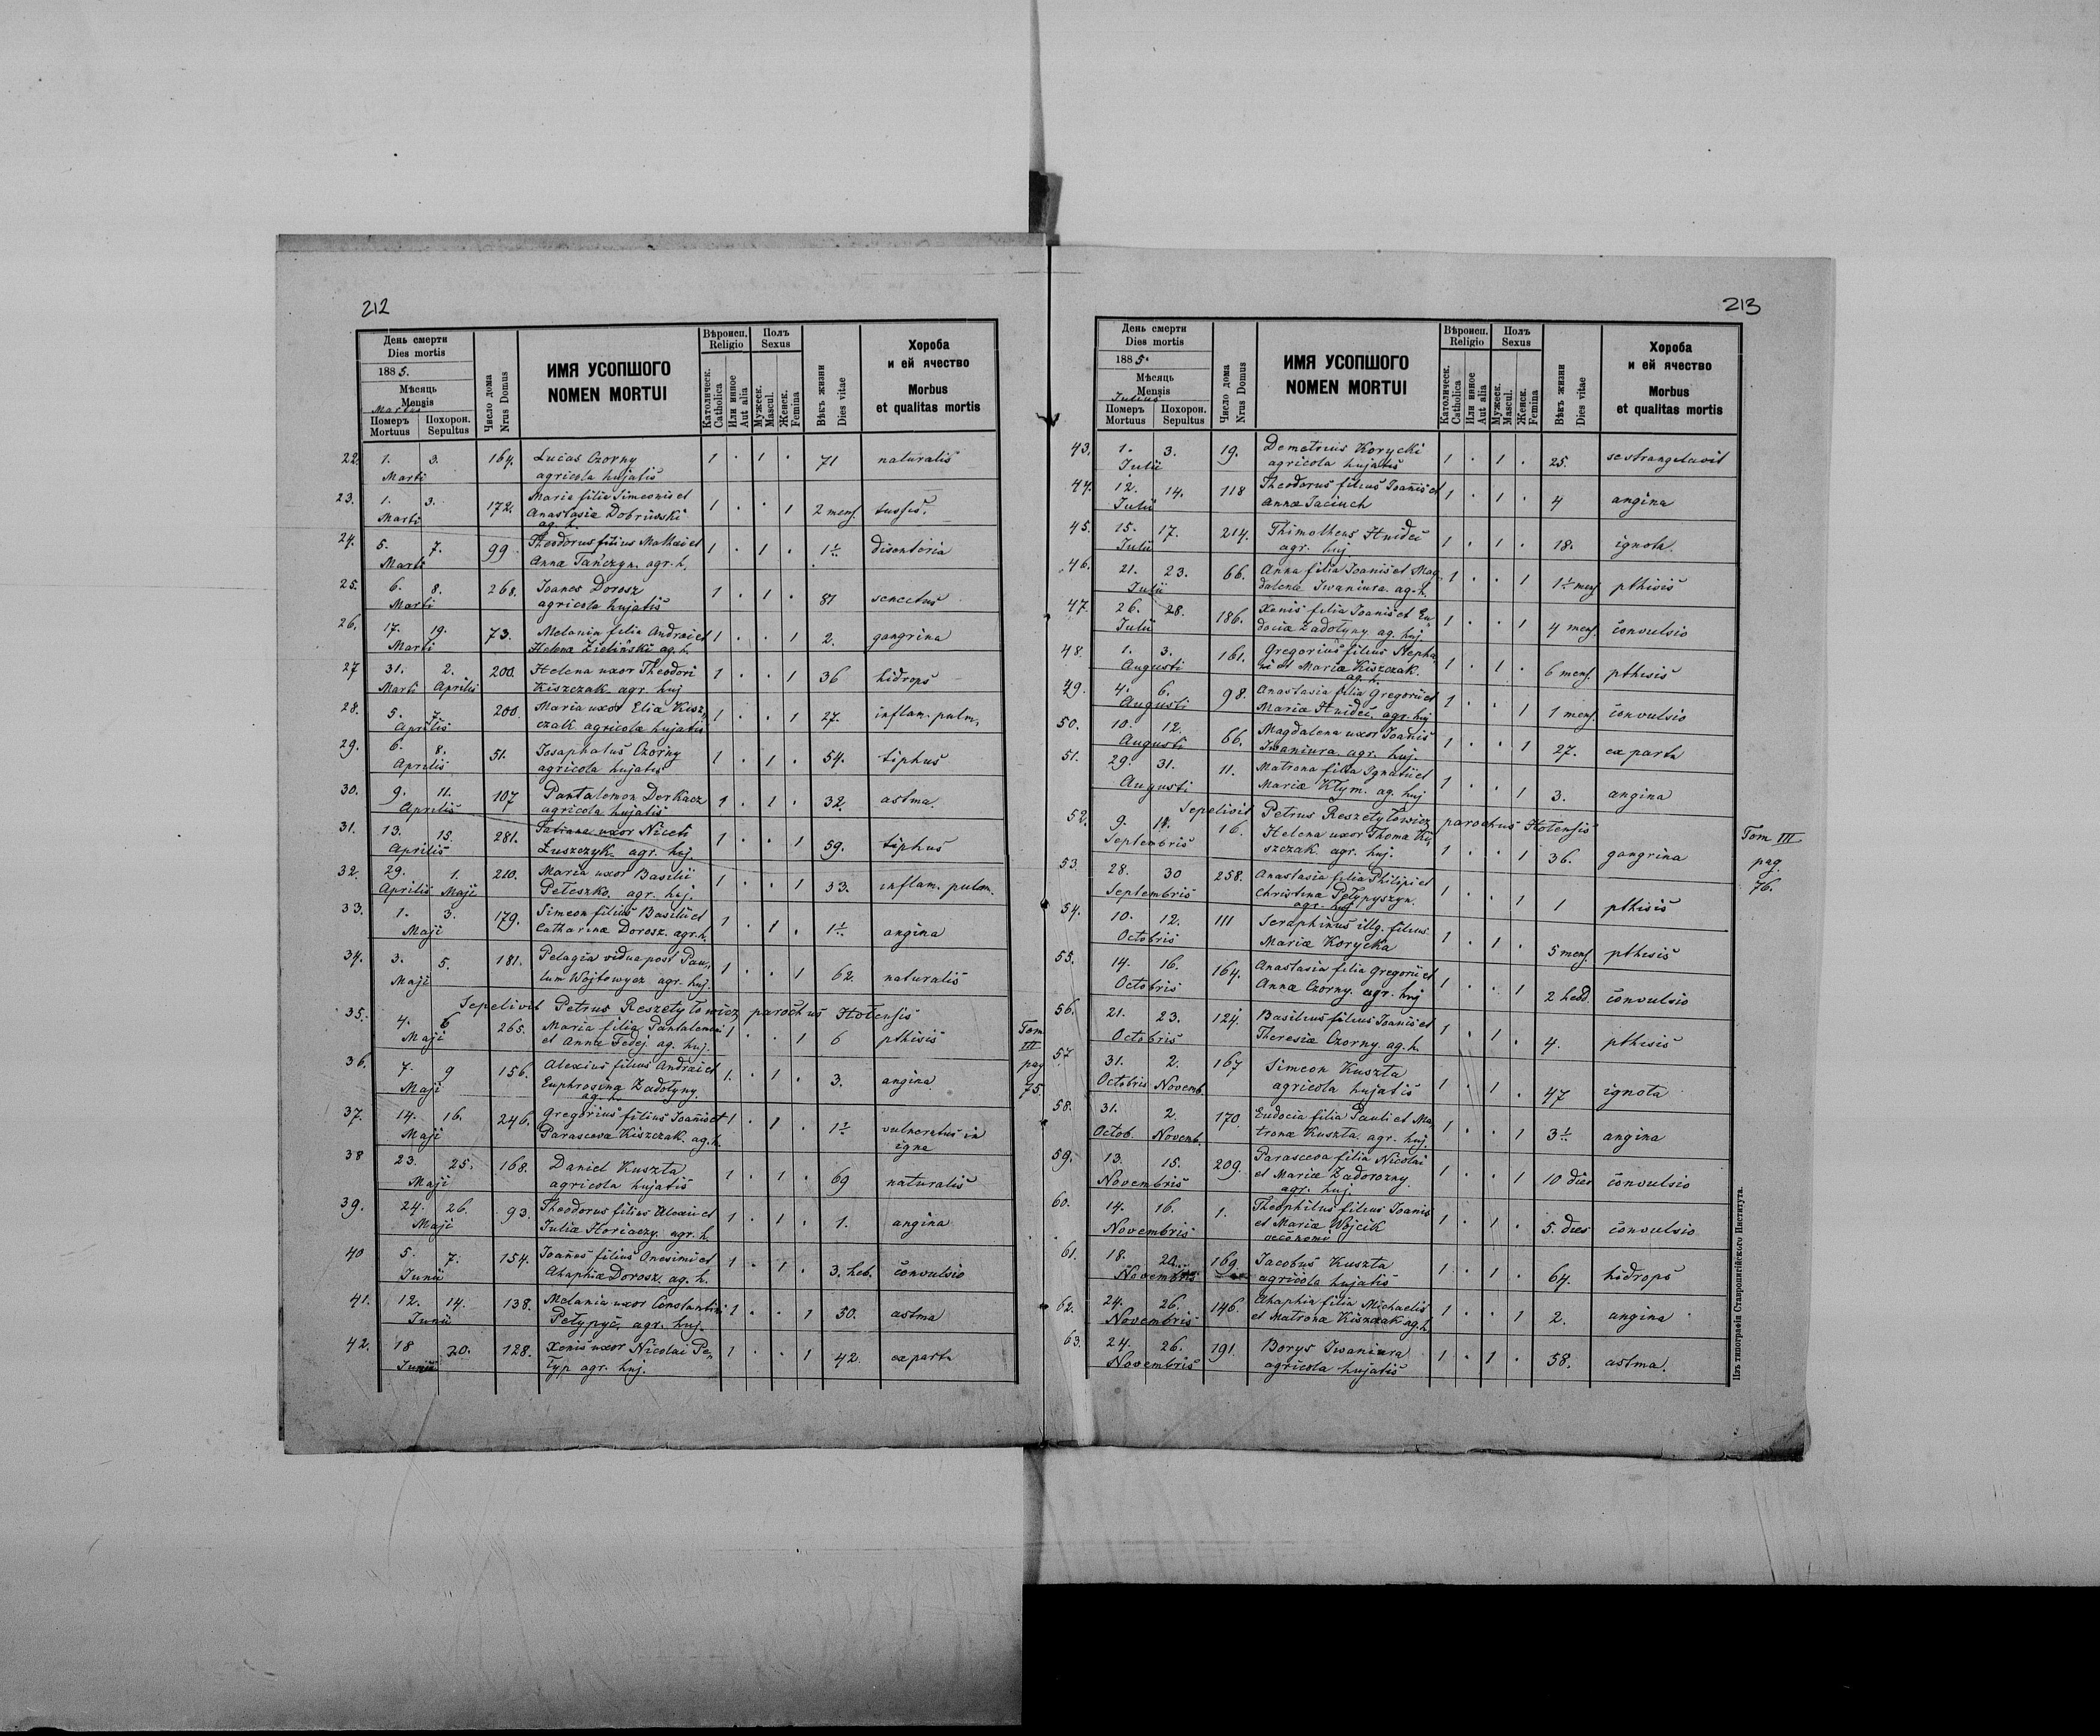 212
День смерти
Dies mortis
1885.
Мѣсяць
Mensis
Martius
Померъ Похорон.
Mortuus Sepultus
Число дома
Nrus Domus
ИМЯ УСОПШОГО
NOMEN MORTUI
Вѣроисп.
Religio
Католическ.
Catholica
Или инное
Aut alia
Полъ
Sexus
Мужеск.
Mascul.
Женск.
Femina
Вѣкъ жизни
Dies vitae
Хороба
и ей ячество
Morbus
et qualitas mortis
22. 1. 3. 164. Lucas Czorny 1 . 1 . 71 naturalis
Marti agricola hujatis
23. 1. 3. 172. Maria filia Simeonis et 1 . . 1 2 mens. tussis.
Marti Anastasiæ Dobruwski
ag. h.
24. 5. 7. 99 Theodorus filius Mathæi et 1 . 1 . 1½ disenteria
Marti Annæ Tańczyn. agr. h.
25. 6. 8. 268. Joanes Dorosz 1 . 1 . 81 senectus
Marti agricola hujatis
26. 17. 19. 73. Melania filia Andrei et 1 . . 1 2. gangrina
Marti Helenæ Zieliński ag. h.
27 31. 2. 200. Helena uxor Theodori 1 . . 1 36 hidrops
Marti Aprilis Kiszczak agr. huj
28. 5. 7. 200. Maria uxor Eliæ Kisz„ 1 . . 1 27. inflam. pulm,
Aprilis czak agricolæ hujatis
29. 6. 8. 51. Josaphatus Czorny 1 . 1 . 54. tiphus
Aprilis agricola hujatis
30. 9. 11. 107 Pantalemon Derkacz 1 . 1 . 32. astma.
Aprilis agricola hujatis
31. 13. 15. 281. Tatiana uxor Niceti 1 . . 1 59. tiphus
Aprilis Łuszczyk. agr. huj.
32. 29. 1. 210. Maria uxor Basilii 1 . . 1 33. inflam. pulom.
Aprilis Maji Peteszko. agr. huj.
33. 1. 3. 179. Simeon filius Basilii et 1 . 1 . 1½ angina
Maji Catharinæ Dorosz. agr. h.
34. 3. 5. 181. Pelagia vidua post Pau„ 1 . . 1 62. naturalis
Maji lum Wojtowycz agr. huj.
Sepelivit Petrus Reszetyłowicz parochus Hołensis
35. 4. 6 265. Maria filia Pantalemoni 1 . . 1 6 pthisis
Maji et Annæ Fedej. ag. huj.
Tom
III
pag
75.
36. 7. 9 156. Alexius filius Andrei et 1. . 1 . 3. angina
Maji Euphrosinæ Zadołyny.
ag. h.
37. 14. 16. 246. Gregorius filius Joanis et 1 . 1 . 1½ vulneratus in
Maji Parascevæ Kiszczak. ag. h. igne
38 23. 25. 168. Daniel Kuszta 1 . 1 . 69 naturalis
Maji agricola hujatis
39. 24. 26. 93. Theodorus filius Alexii et 1 . 1 . 1. angina
Maji Juliæ Horiaczy. agr. h.
40 5. 7. 154. Joanes filius Onesimi et 1 . 1 . 3. heb. convulsio
Junii Ahaphiæ Dorosz. ag. h.
41. 12. 14. 138. Melania uxor Constantini 1 . . 1 50. astma
Junii Pełypyć. agr. huj.
42. 18 20. 128. Xenis uxor Nicolai Pe„ 1 . . 1 42. ex partu
Junii łyp agr. huj.
213
День смерти
Dies mortis
1885.
Мѣсяць
Mensis
Julius
Померъ Похорон.
Mortuus Sepultus
Число дома
Nrus Domus
ИМЯ УСОПШОГО
NOMEN MORTUI
Вѣроисп.
Religio
Католическ.
Catholica
Или инное
Aut alia
Полъ
Sexus
Мужеск.
Mascul.
Женск.
Femina
Вѣкъ жизни
Dies vitae
Хороба
и ей ячество
Morbus
et qualitas mortis
43. 1. 3. 19. Demetrius Korycki 1 . 1 . 25. se strangulavit
Julii agricola hujatis
44. 12. 14. 118 Theodorus filius Joanis et 1 . 1 . 4 angina
Julii Annæ Jaciuch
45. 15. 17. 214. Thimotheus Hnideć 1 . 1 . 18. ignota.
Julii agr. huj.
46. 21. 23. 66. Anna filia Joanis et Mag„ 1 . . 1 1½ mens pthisis
Julii dalenæ Iwaniura. ag. h.
47. 26. 28. 186. Xenis filia Joanis et Eu„ 1 . . 1 4 mens. convulsio
Julii dociæ Zadołyny ag. huj.
48. 1. 3. 161. Gregorius filius Nepha„ 1 . 1 . 6 mens. pthisis
Augusti ni et Mariæ Kiszczak.
ag. h.
49. 4. 6. 98. Anastasia filia Gregorii et 1 . . 1 1 mens. convulsio
Augusti Mariæ Hnideć. agr. huj
50. 10. 12. 66. Magdalena uxor Joanis 1 . . 1 27. ex partu
Augusti Iwaniura agr. huj.
51. 29. 31. 11. Matrona filia Ignatii et 1 . . 1 3. angina
Augusti Mariæ Kłym. ag. huj
Sepelivit Petrus Reszetyłowicz parochus Hołensis
52. 9. 11. 16. Helena uxor Thoma Ki„ 1 . . 1 36. gangrina
Septembris szczak. agr. huj.
Tom III
pag.
76.
53. 28. 30 258. Anastasia filia Philipi et 1 . . 1 1 pthisis
Septembris Christinæ Pełypyszyn.
agr. huj
54. 10. 12. 111 Seraphinus illg. filius 1 . 1 . 5 mens. pthisis
Octobris Mariæ Korycka
55. 14. 16. 164. Anastasia filia Gregorii et 1 . . 1 2 hebd. convulsio
Octobris Annæ Czorny. agr. huj
56. 21. 23. 124. Basilius filius Joanis et 1 . 1 . 4. pthisis
Octobris Theresiæ Czorny. ag. h.
57. 31. 2. 167 Simeon Kuszta 1 . 1 . 47 ignota
Octobris Novemb. agricola hujatis
58. 31. 2. 170. Eudocia filia Pauli et Ma 1 . . 1 3½ angina
Octob. Novemb. tronæ Kuszta. agr. huj.
59. 13. 15. 209. Parasceva filia Nicolai 1 . . 1 10 dies convulsio
Novembris et Mariæ Zadorozny.
agr. huj.
60. 14. 16. 1. Theophilus filius Joanis 1 . 1 . 5. dies convulsio
Novembris et Mariæ Wójcik
oeconomi
61. 18. 20. 169. Jacobus Kuszta 1 . 1 . 64. hidrops
Novembris agricola hujatis
62. 24. 26. 146. Ahaphia filia Michaelis 1 . . 1 2. angina
Novembris et Matronæ Kiszczak ag. h.
63. 24. 26. 191. Borys Iwaniura 1 . 1 . 58. astma.
Novembris agricola hujatis
Изъ типографіи Ставропигійского Института.